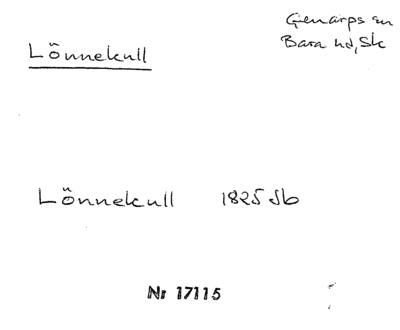 Genarps sn
Bara hd, Sk
Lönnekull
Lönnekull 1825 Jb
Nr 17115